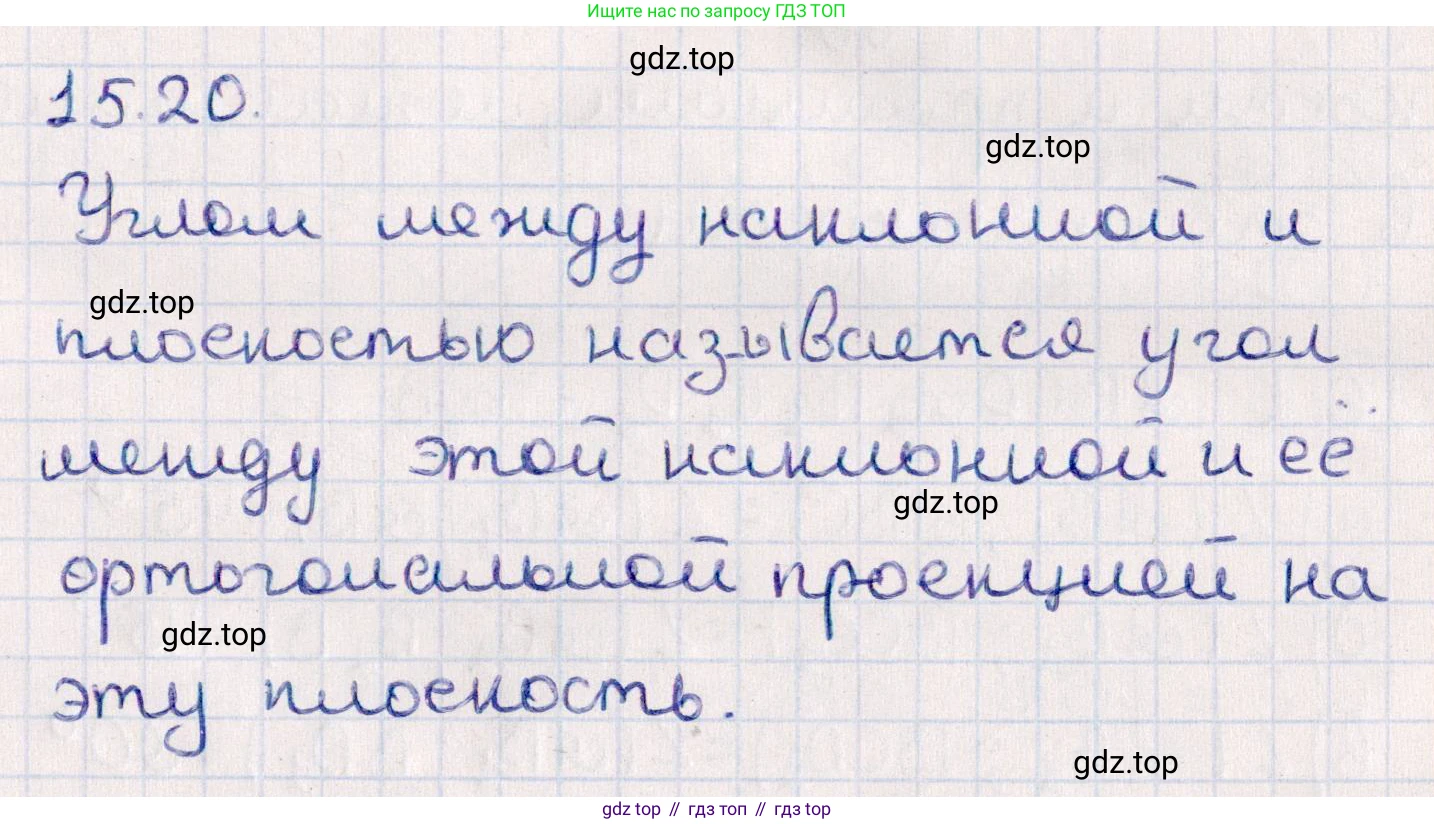 Ищите нас по запросу ГДЗ ТОП
gdz.top
15.20.
gdz.top
Углом между наклонной и
gdz.top
плоскостью называется угол
между этой наклонной и её
gdz.top
ортогональной проекцией на
gdz.top
эту плоскость.
gdz.top
gdz top // гдз топ // гдз top